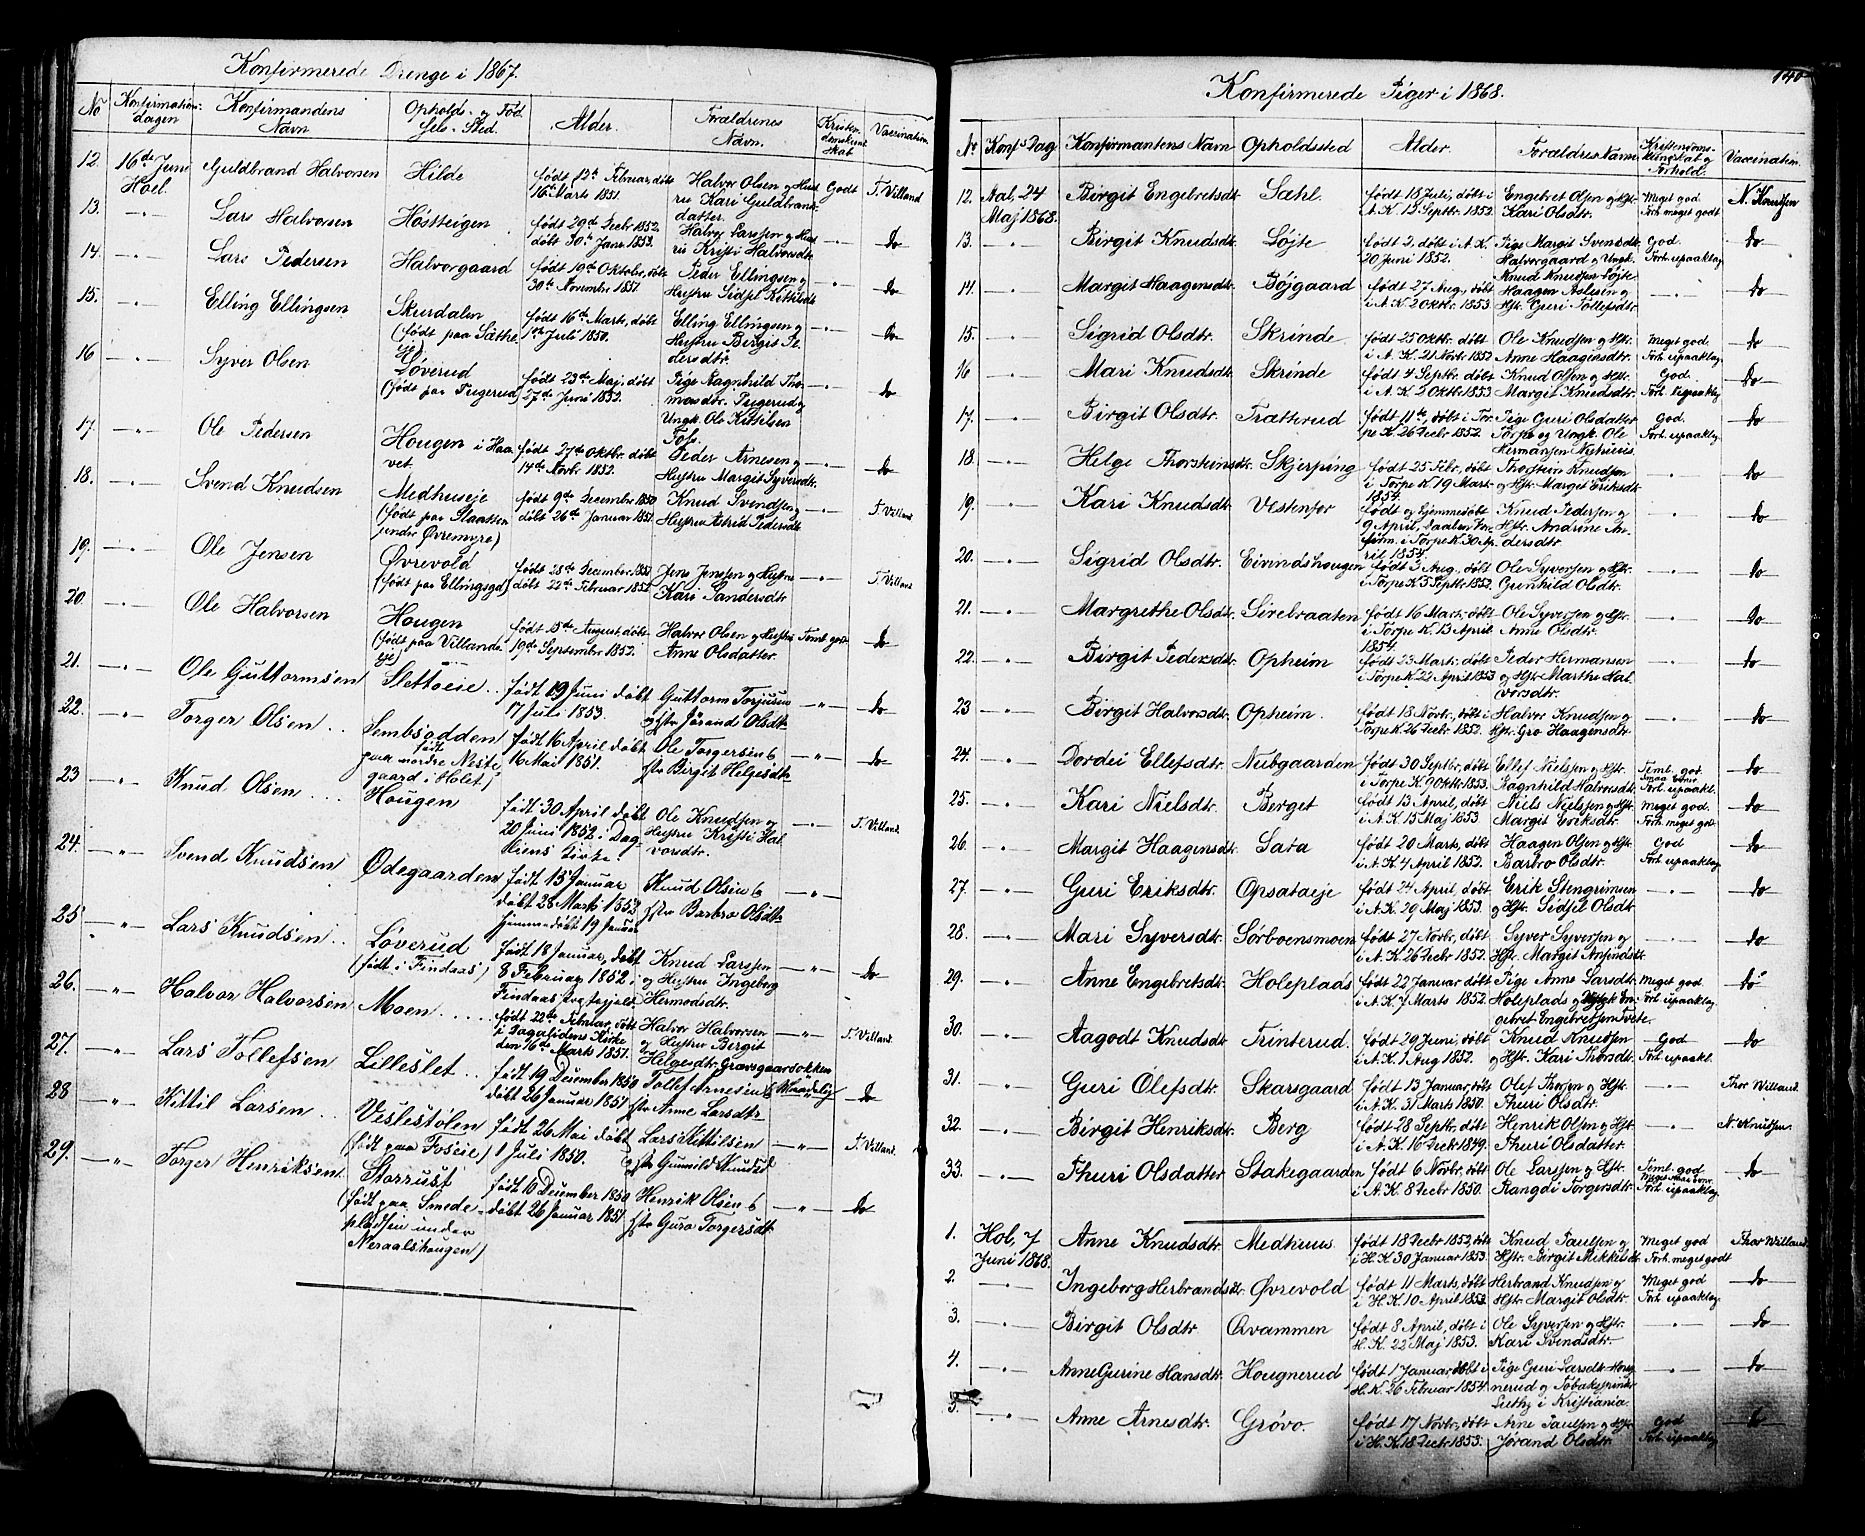 Konfirmerede Drenge i 1867.
No Konfirmations-dagen Konfirmandens Navn Opholds- og Fødsels-Sted. Alder. Forældrenes Navn. Kristendomskundskab Vaccination.
12. 16de Juni Hoel. Guldbrand Halvorsen Hilde født 12te Februar, døbt 16de Marts 1851. Halvor Olsen og Hustru Kari Guldbrandsdatter. Godt T. Villand
13. -"- Lars Halvorsen Høstteigen født 29de Decbr 1852. døbt 30te Janr 1853. Halvor Larssen og Hustru Kristi Halvorsdtr. -"- do
14. -"- Lars Pedersen Halvorgaard født 19de Oktobr, døbt 30te Novembr 1851. Peder Ellingsen og Hustru Sidsel Kittilsdtr. -"- do
15. -"- Elling Ellingsen Skurdalen (født paa Sætheeje) født 16de Marts, døbt 1ste Juli 1850. Elling Ellingsen og Hustru Birgit Pedersdtr. -"- do
16 -"- Syver Olsen Løverud (født paa Tugerud) født 23de Maj, døbt 27de Juni 1852. Pige Ragnhild Thomasdtr. Tugerud og Ungk. Ole Kittilsen Fos. -"- do
17. -"- Ole Pedersen Hougen i Haavet. født 27de Oktbr. døbt 14de Novbr. 1852. Peder Arnesen og Hustru Margit Syversdtr. -"- do
18. -"- Svend Knudsen Medhuseje (født paa Slaatten under Øvremyre) født 9de Decembr 1850 døbt 26de Januar 1851. Knud Svendsen og Hustru Astrid Pedersdtr -"- T. Villand
19. -"- Ole Jensen Øvrevold (født paa Ellingsgd) født 28de Decembr 1851 døbt 22de Februar 1852. Jens Jenssen og Hustru Kari Sandersdtr -"- T. Villand
20. -"- Ole Halvorsen Hougen (født paa Villandeje) født 15de August, døbt 19de September 1852. Halvor Olsen og Hustru Anne Olsdatter. Teml. godt do
21. -"- Ole Guttormsen Slettoeie.. født 19 Juni døbt 17 Juli 1853. Guttorm Torjusen og Hstr Jørande Olsdtr -"- do
22. -"- Torger Olsen.. Sembsodden født paa nordre Nestegaard i Holet) født 16 April døbt 16 Mai 1851. Ole Torgersen & Hstr Birgit Helgesdtr -"- do
23 -"- Knud Olsen.... Hougen født 30 April døbt 20 Juni 1852 i Dagliens Kirke. Ole Knudsen og Hustru Kristi Halvorsdtr. -"- T. Villand.
24. -"- Svend Knudsen Ødegaarden født 15 Januar døbt 28 Marts 1852, hjemmedøbt 19 Januar Knud Olsen & Hstr Barbro Olsdtr -"-
25 -"- Lars Knudsen.. Løverud (født i Findaas) født 18 Januar, døbt 8 Februar 1852, i Findaas Knud Larssen og Hustru Ingeborg Hermodsdtr. -"- do
26. -"- Halvor Halvorsen Moen.... født 22de Februar, døbt i Dagalidens Kirke den 16de Marts 1851. Halvor Halvorsen og Hustru Bergit Helgesdtr. Gravsgaardsokken -"- T. Villand.
27. -"- Lars Tollefsen Lilleslet.. født 19 Desember 1850 døbt 26 Januar 1851 Tollef Arnesen & Hstr Anne Larsdtr Maadelig do
28 -"- Kittil Larsen.. Veslestolen (født paa Foseie) født 26 Mai døbt 1 Juli 1850. Lars Kittilsen og Hstr Gunnild Knudsd -"- T. Villand.
29. -"- Torger Henriksen. Storrust (født paa Smedepladsen under Neraalshougen) født 10 December 1850 døbt 26 Januar 1851 Henrik Olsen & Hstr Guro Torgersdtr -"- do
140
Konfirmerede Piger i 1868.
No. Konfs Dag Konfirmantens Navn Opholdssted Alder. Forældres Navn Kristendomskundskab og Forhold. Vaccination.
12. Aal, 24 Maj 1868. Birgit Engebretsdtr Sæhl. født 18 Juli, døbt i A. K. 12 Septbr. 1852. Engebret Olsen og Hstr. Kari Olsdtr. Meget god Forh. meget godt N. Knutsen
13. -"- Birgit Knudsdtr. Løjte født 2. døbt i A. K. 20 Juni 1852. Pige Margit Svensdtr. Halvorgaard og Ungk. Knud Knudsen Løjte God. Forh. upaaklag do
14. -"- Margit Haagensdtr. Bøjgaard født 27 Aug., døbt i A. K. 2 Oktbr. 1853. Haagen Aslesen og Hstr. Guri Tollefsdtr. -"- do
15. -"- Sigrid Olsdtr. Skrinde. født 25 Oktbr. døbt i A. K. 21 Novbr. 1852. Ole Knudsen og Hstr. Anne Haagensdtr. Meget god. Forh. upaaklag do
16 -"- Mari Knudsdtr. Skrinde født 4 Septbr. døbt i A. K. 2 Oktbr. 1853 Knud Olsen og Hstr. Margit Knudsdtr. God. Forh. upaaklag do
17. -"- Birgit Olsdtr. Trætterud født 11te, døbt i Torpe K. 26 Decbr 1852. Pige Guri Olsdatter Torpe og Ungk. Ole Hermansen Nyhuus. God. Forh. upaaklag do
18. -"- Helge Thorsteinsdtr. Skjerping født 25 Febr, døbt i Torpe K. 19 Mart. 1854. Thorstein Knudsen og Hstr. Margit Eriksdtr. -"- do
19. -"- Kari Knudsdtr. Vestenfor født og hjemmedøbt 9 April, Daaben konfirm. i Torpe K. 30 April 1854. Knud Pedersen og Hstr. Andrine Andersdtr. -"- do
20. -"- Sigrid Olsdtr. Eivindshougen født 3 Aug., døbt i Torpe K. 5 Septbr. 1852. Ole Syversen og Hstr. Gunhild Olsdtr. -"- do
21. -"- Margrethe Olsdtr. Sirebraaten født 16 Mart. døbt i Torpe K. 13 April 1854. Ole Syversen og Hstr. Anne Olsdtr. -"- do
22. -"- Birgit Pedersdtr. Opheim født 23 Mart. døbt i Torpe K. 22 April 1853 Peder Hermansen og Hstr. Marthe Halvorsdtr. -"- do
23 -"- Birgit Halvorsdtr. Opheim. født 18 Novbr., døbt i Torpe K. 26 Decbr 1852. Halvor Knudsen og Hstr. Gro Haagensdtr. -"- do
24. -"- Dordei Ellefsdtr. Nubgaarden født 30 Septbr, døbt i Torpe K. 9 Oktbr 1853. Ellef Nielsen og Hstr. Ragnhild Halvorsdtr. Teml. god smaa Evner Forh. upaakl. do
25. -"- Kari Nielsdtr. Berget født 13 April, døbt i A. K. 15 Maj 1853 Niels Nielssen og Hstr. Margit Eriksdtr. Meget god. Forh. meget godt do
26. -"- Margit Haagensdtr. Sara født 20 Marts, døbt i A. K. 4 April 1852. Haagen Olsen og Hstr. Barbro Olsdtr. God Forh. upaaklag do
27. -"- Guri Eriksdtr. Opsataeje født 24 April, døbt i A. K. 29 Maj 1853. Erik Stengrimsen og Hstr. Sidsel Olsdtr. -"- do
28. -"- Mari Syversdtr. Sørboensmoen født 27 Novbr, døbt i A. K. 26 Decbr 1852. Syver Syversen og Hstr. Margit Arnfindsdtr. -"- do
29. -"- Anne Engebretsdtr. Holeplads født 22 Januar døbt i A. K. 7 Marts 1852. Pige Anne Larsdtr. Holeplads og Ungk Engebret Engebretsen Tvete. Meget god Forh. upaaklag do
30. -"- Aagodt Knudsdtr. Trinterud. født 29 Juni, døbt i A. K. 1 Aug 1852. Knud Knudsen og Hstr. Kari Thorsdtr. God Forh. upaakl. do
31. -"- Guri Olefsdtr. Skarsgaard født 13 Januar, døbt i A. K. 31 Marts 1850. Olef Thorsen og Hstr. Thuri Olsdtr. -"- Thor Willand.
32. -"- Birgit Henriksdtr. Berg født 28 Septr., døbt i A. K. 16 Decbr 1849. Henrik Olsen og Hstr. Thuri Olsdatter. -"- N. Knutsen.
33. -"- Thuri Olsdatter Stakegaarden født 6 Novbr. døbt i A. K. 8 Decbr 1850. Ole Larssen og Hstr. Rangdi Torgersdtr. Teml. god Meget smaa Evner Forh. upaaklag do
1. Hol, 7 Juni 1868. Anne Knudsdtr. Medhuus født 18 Decbr 1852, døbt i H. K. 30 Januar 1853. Knud Paulsen og Hstr. Birgit Mikkelsdtr. Meget god Forh. meget godt Thor Willand
2. -"- Ingeborg Herbrandsdtr. Øvrevold født 11 Marts, døbt i H. K. 10 April 1853. Herbrand Knudsen og Hstr. Margit Olsdtr. Meget god Forh. upaaklag. do
3. -"- Birgit Olsdtr Qvammen født 8 April, døbt i H. K. 22 Maj 1853. Ole Syversen og Hstr. Kari Svendsdtr. -"- do
4. -"- Anne Gurine Hansdtr. Hougnerud født 1 Januar døbt i H. K. 26 Februar 1854. Pige Guri Larsdtr. Hougnerud og Tobakspinder i Kristiania. -"- do
5. -"- Anne Arnesdtr. Grøvo. født 17 Novbr. døbt i H. K. 18 Decbr 1853. Arne Paulsen og Hstr. Jørand Olsdtr. God Forh. upaaklag. do